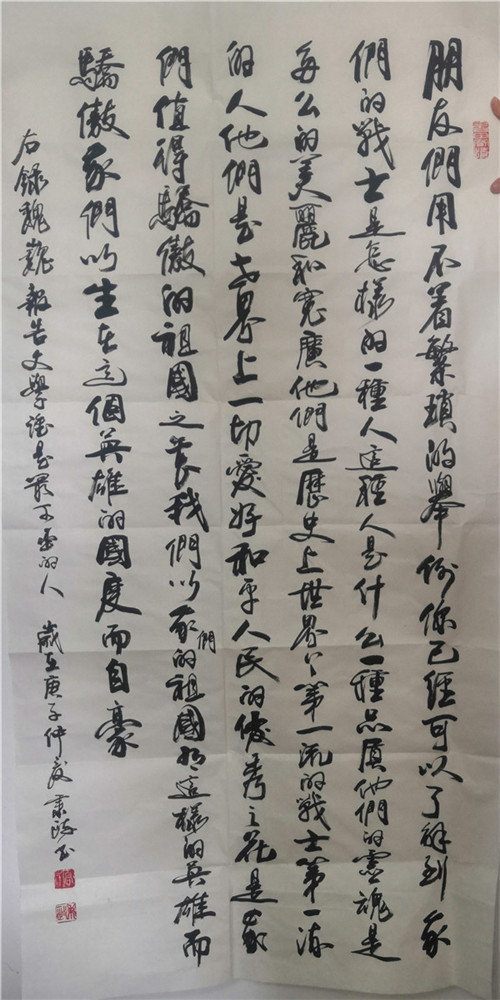 朋友們用不着繁瑣的舉例你已經可以了解到我
們的戰士是怎樣的一種人這種人是什么一種品质他們的靈魂是
多么的美麗和寬廣他們是歷史上世界上第一流的戰士第一流
的人他們是世界上一切愛好和平人民的優秀之花是我
們值得驕傲的祖國之花我們以我們的祖國有這樣的英雄而
驕傲我們以生在這個英雄的國度而自豪
右錄魏巍報告文學誰是最可愛的人 歲在庚子仲夏 書